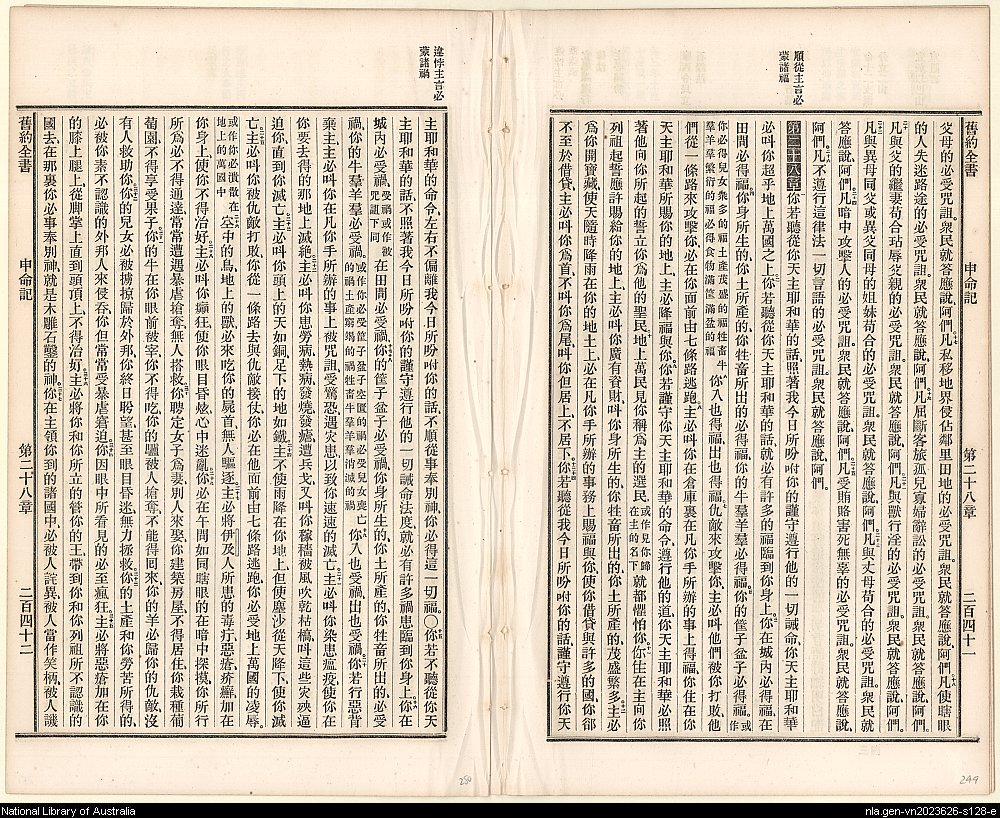 順從主言必
蒙諸福
舊約全書 申命記 第二十八章 二百四十一
父母的必受咒詛。衆民就答應說、阿們。凡私移地界侵佔鄰里田地的必受咒詛。衆民就答應說、阿們。凡使瞎眼
的人失迷路途的必受咒詛。衆民就答應說、阿們。凡屈斷客旅孤兒寡婦辭訟的必受咒詛。衆民就答應說、阿們。
凡與父的繼妻苟合玷辱父親的必受咒詛。衆民就答應說、阿們。凡與獸行淫的必受咒詛。衆民就答應說、阿們。
凡與異母同父或異父同母的姐妹苟合的必受咒詛。衆民就答應說、阿們。凡與丈母苟合的必受咒詛。衆民就
答應說、阿們。凡暗中攻擊人的必受咒詛。衆民就答應說、阿們。凡受賄賂害死無辜的必受咒詛。衆民就答應說、
阿們。凡不遵行這律法一切言語的必受咒詛。衆民就答應說、阿們。
第二十八章 你若聽從你天主耶和華的話、照著我今日所吩咐你的、謹守遵行他的一切誡命、你天主耶和華
必叫你超乎地上萬國之上。你若聽從你天主耶和華的話、就必有許多的福臨到你身上。你在城內必得福、在
田間必得福。你身所生的、你土所產的、你牲畜所出的、必得福、你的牛羣羊羣必得福。你的筐子盆子必得福。或作
你必得兒女衆多的福土產茂盛的福牲畜牛
羊羣繁衍的福必得食物滿筐滿盆的福 你入也得福、出也得福。仇敵來攻擊你、主必叫他們被你打敗、他
們從一條路來攻擊你、必在你面前由七條路逃跑。主必叫你在倉庫裏、在凡你手所辦的事上得福、你住在你
天主耶和華所賜你的地上、主必降福與你。你若謹守你天主耶和華的命令、遵行他的道、你天主耶和華必照
著他向你所起的誓立你爲他的聖民。地上萬民見你稱爲主的選民、或作見你歸
在主的名下 就都懼怕你。你住在主向你
列祖起誓應許賜給你的地上、主必叫你廣有資財、叫你身所生的、你牲畜所出的、你土所產的、茂盛繁多。主必
爲你開寶藏、使天隨時降雨在你的地土上、必在凡你手所辦的事務上、賜福與你、使你借貸與許多的國、你卻
不至於借貸。主必叫你爲首、不叫你爲尾、叫你但居上、不居下。你若聽從我今日所吩咐你的話、謹守遵行你天
244
違悖主言必
蒙諸禍
主耶和華的命令、左右不偏離我今日所吩咐你的話、不順從事奉別神、你必得這一切福。〇你若不聽從你天
主耶和華的話、不照著我今日所吩咐你的謹守遵行他的一切誡命法度、就必有許多禍患臨到你身上。你在
城內必受禍、受禍或作被
咒詛下同 在田間必受禍。你的筐子盆子必受禍。你身所生的、你土所產的、你牲畜所出的、必受
禍、你的牛羣羊羣必受禍。或作你必受筐子盆子空匱的禍必受兒女喪亡
的禍土產窮竭的禍牲畜牛羣羊羣消滅的禍 你入也受禍、出也受禍。你若行惡背
棄主、主必叫你在凡你手所辦的事上、被咒詛、受驚恐、遇災患、以致你速速的滅亡。主必叫你染患瘟疫、使你在
你要去得的那地上滅絕。主必叫你患勞病、熱病、發燒、發瘧、遭兵戈、又叫你稼穡被風吹乾枯槁、叫這些災殃逼
迫你、直到你滅亡。主必叫你頭上的天如銅、足下的地如鐵。主不使雨降在你地上、但使塵沙從天降下、使你滅
亡。主必叫你被仇敵打敗、你從一條路去與仇敵接仗、你必在他面前由七條路逃跑、你必受地上萬國的凌辱。
或作你必潰散在
地上的萬國中 空中的鳥、地上的獸、必來吃你的屍首、無人驅逐。主必將伊及人所患的毒疔、惡瘡、疥癬、加在
你身上、使你不得治好。主必叫你癲狂、使你眼目昏眩、心中迷亂。你必在午間如同瞎眼的在暗中探摸、你所行
所爲、必不得通達、常常遭遇暴虐搶奪、無人搭救。你聘定女子爲妻、別人來娶、你建築房屋、不得居住、你栽種葡
萄園、不得享受果子。你的牛在你眼前被宰、你不得吃、你的驢被人搶奪、不能得回來、你的羊必歸你的仇敵、沒
有人救助你。你的兒女必被擄掠歸於外邦、你終日盼望、甚至眼目昏迷、無力拯救。你的土產和你勞苦所得的、
必被你素不認識的外邦人來侵吞、你但常常受暴虐窘迫。你因眼中所看見的、必至瘋狂。主必將惡瘡加在你
的膝上腿上、從脚掌上直到頭頂上、不得治好。主必將你和你所立的管你的王、帶到你和你列祖所不認識的
國去、在那裏你必事奉別神、就是木雕石鑿的神。你在主領你到的諸國中、必被人詫異、被人當作笑柄、被人譏
舊約全書 申命記 第二十八章 二百四十二
250
National Library of Australia
nla.gen-vn2023626-s128-e